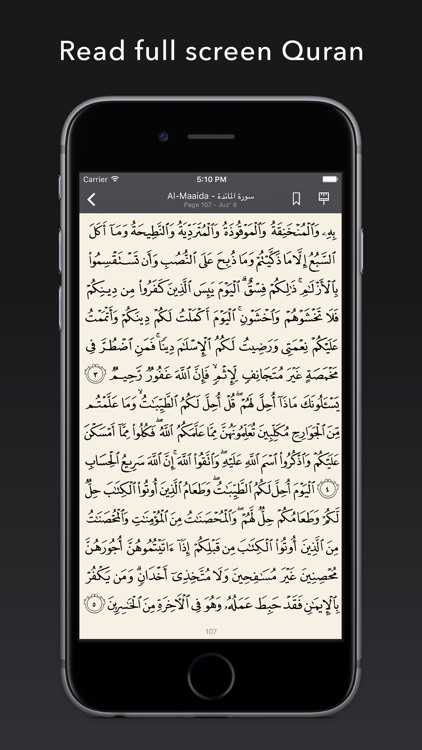 Read full screen Quran
Carrier 5:10 PM
Al-Maaida - سورة المائدة
Page 107 - Juz' 6
بِهِۦ وَٱلْمُنْخَنِقَةُ وَٱلْمَوْقُوذَةُ وَٱلْمُتَرَدِّيَةُ وَٱلنَّطِيحَةُ وَمَآ أَكَلَ
ٱلسَّبُعُ إِلَّا مَا ذَكَّيْتُمْ وَمَا ذُبِحَ عَلَى ٱلنُّصُبِ وَأَن تَسْتَقْسِمُوا۟
بِٱلْأَزْلَٰمِ ۚ ذَٰلِكُمْ فِسْقٌ ۗ ٱلْيَوْمَ يَئِسَ ٱلَّذِينَ كَفَرُوا۟ مِن دِينِكُمْ
فَلَا تَخْشَوْهُمْ وَٱخْشَوْنِ ۚ ٱلْيَوْمَ أَكْمَلْتُ لَكُمْ دِينَكُمْ وَأَتْمَمْتُ
عَلَيْكُمْ نِعْمَتِى وَرَضِيتُ لَكُمُ ٱلْإِسْلَٰمَ دِينًا ۚ فَمَنِ ٱضْطُرَّ فِى
مَخْمَصَةٍ غَيْرَ مُتَجَانِفٍ لِّإِثْمٍ ۙ فَإِنَّ ٱللَّهَ غَفُورٌ رَّحِيمٌ ٣
يَسْـَٔلُونَكَ مَاذَآ أُحِلَّ لَهُمْ ۖ قُلْ أُحِلَّ لَكُمُ ٱلطَّيِّبَٰتُ ۙ وَمَا عَلَّمْتُم
مِّنَ ٱلْجَوَارِحِ مُكَلِّبِينَ تُعَلِّمُونَهُنَّ مِمَّا عَلَّمَكُمُ ٱللَّهُ ۖ فَكُلُوا۟ مِمَّآ أَمْسَكْنَ
عَلَيْكُمْ وَٱذْكُرُوا۟ ٱسْمَ ٱللَّهِ عَلَيْهِ ۖ وَٱتَّقُوا۟ ٱللَّهَ ۚ إِنَّ ٱللَّهَ سَرِيعُ ٱلْحِسَابِ
٤ ٱلْيَوْمَ أُحِلَّ لَكُمُ ٱلطَّيِّبَٰتُ ۖ وَطَعَامُ ٱلَّذِينَ أُوتُوا۟ ٱلْكِتَٰبَ حِلٌّ
لَّكُمْ وَطَعَامُكُمْ حِلٌّ لَّهُمْ ۖ وَٱلْمُحْصَنَٰتُ مِنَ ٱلْمُؤْمِنَٰتِ وَٱلْمُحْصَنَٰتُ
مِنَ ٱلَّذِينَ أُوتُوا۟ ٱلْكِتَٰبَ مِن قَبْلِكُمْ إِذَآ ءَاتَيْتُمُوهُنَّ أُجُورَهُنَّ
مُحْصِنِينَ غَيْرَ مُسَٰفِحِينَ وَلَا مُتَّخِذِىٓ أَخْدَانٍ ۗ وَمَن يَكْفُرْ
بِٱلْإِيمَٰنِ فَقَدْ حَبِطَ عَمَلُهُۥ وَهُوَ فِى ٱلْـَٔاخِرَةِ مِنَ ٱلْخَٰسِرِينَ ٥
107